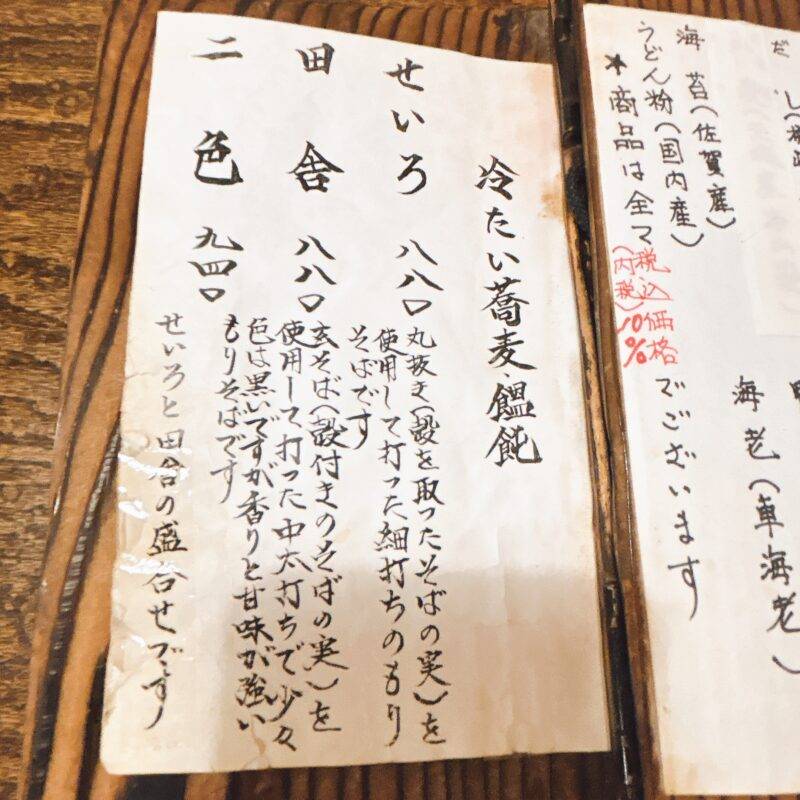 だし(
海苔(佐賀産)
うどん粉(国内産)
*商品は全て税込価格でございます
(内税)10%
海老(車海老)
冷たい蕎麦・饂飩
せいろ 八八〇
丸抜き(殻を取ったそばの実)を
使用して打った細打ちのもり
そばです
田舎 八八〇
玄そば(殻付きのそばの実)を
使用して打った中太打ちで少々
色は黒いですが香りと甘味が強い
もりそばです
二色 九四〇
せいろと田舎の盛合せです